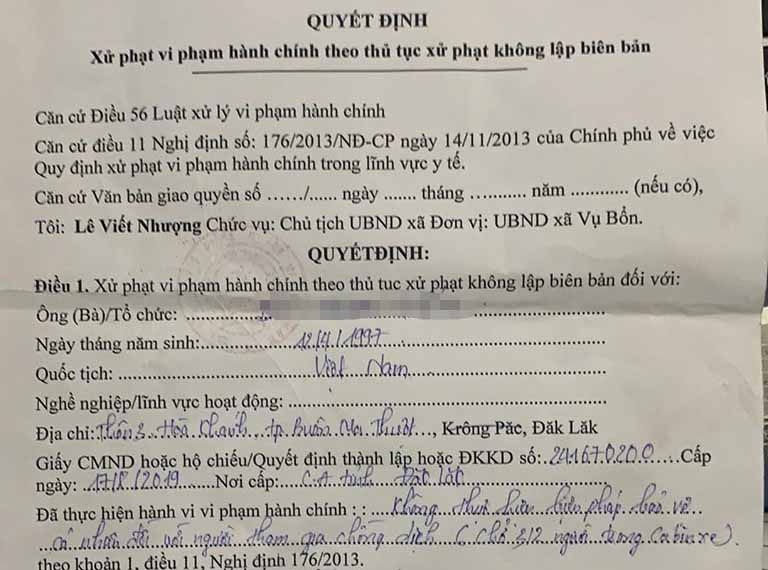 QUYẾT ĐỊNH
Xử phạt vi phạm hành chính theo thủ tục xử phạt không lập biên bản
Căn cứ Điều 56 Luật xử lý vi phạm hành chính
Căn cứ điều 11 Nghị định số: 176/2013/NĐ-CP ngày 14/11/2013 của Chính phủ về việc
Quy định xử phạt vi phạm hành chính trong lĩnh vực y tế.
Căn cứ Văn bản giao quyền số ……/...... ngày ....... tháng .......... năm ............ (nếu có),
Tôi: Lê Viết Nhượng Chức vụ: Chủ tịch UBND xã Đơn vị: UBND xã Vụ Bổn.
QUYẾTĐỊNH:
Điều 1. Xử phạt vi phạm hành chính theo thủ tuc xử phạt không lập biên bản đối với:
Ông (Bà)/Tổ chức:
Ngày tháng năm sinh: 12/4/1997
Quốc tịch: Việt Nam
Nghề nghiệp/lĩnh vực hoạt động:
Địa chỉ: Thôn 3 Hoà Khánh, tp Buôn Ma Thuột, Krông Păc, Đăk Lăk
Giấy CMND hoặc hộ chiếu/Quyết định thành lập hoặc ĐKKD số: 241670200 Cấp
ngày: /2019 Nơi cấp: C.A tỉnh Đắk Lắk
Đã thực hiện hành vi vi phạm hành chính : : Không thực hiện biện pháp bảo vệ
cá nhân đối với người tham gia chống dịch (chở 12 người trong cabin xe).
theo khoản 1, điều 11, Nghị định 176/2013.